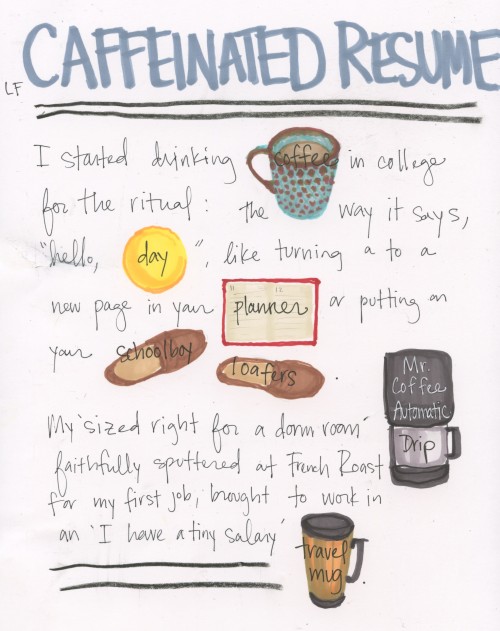 CAFFEINATED RESUME
LF
I started drinking coffee in college
for the ritual: the way it says,
"hello, day", like turning a to a
new page in your planner or putting on
your schoolboy loafers.
My 'sized right for a dorm room' Mr. Coffee Automatic Drip
faithfully sputtered at French Roast
for my first job, brought to work in
an 'I have a tiny salary' travel mug.